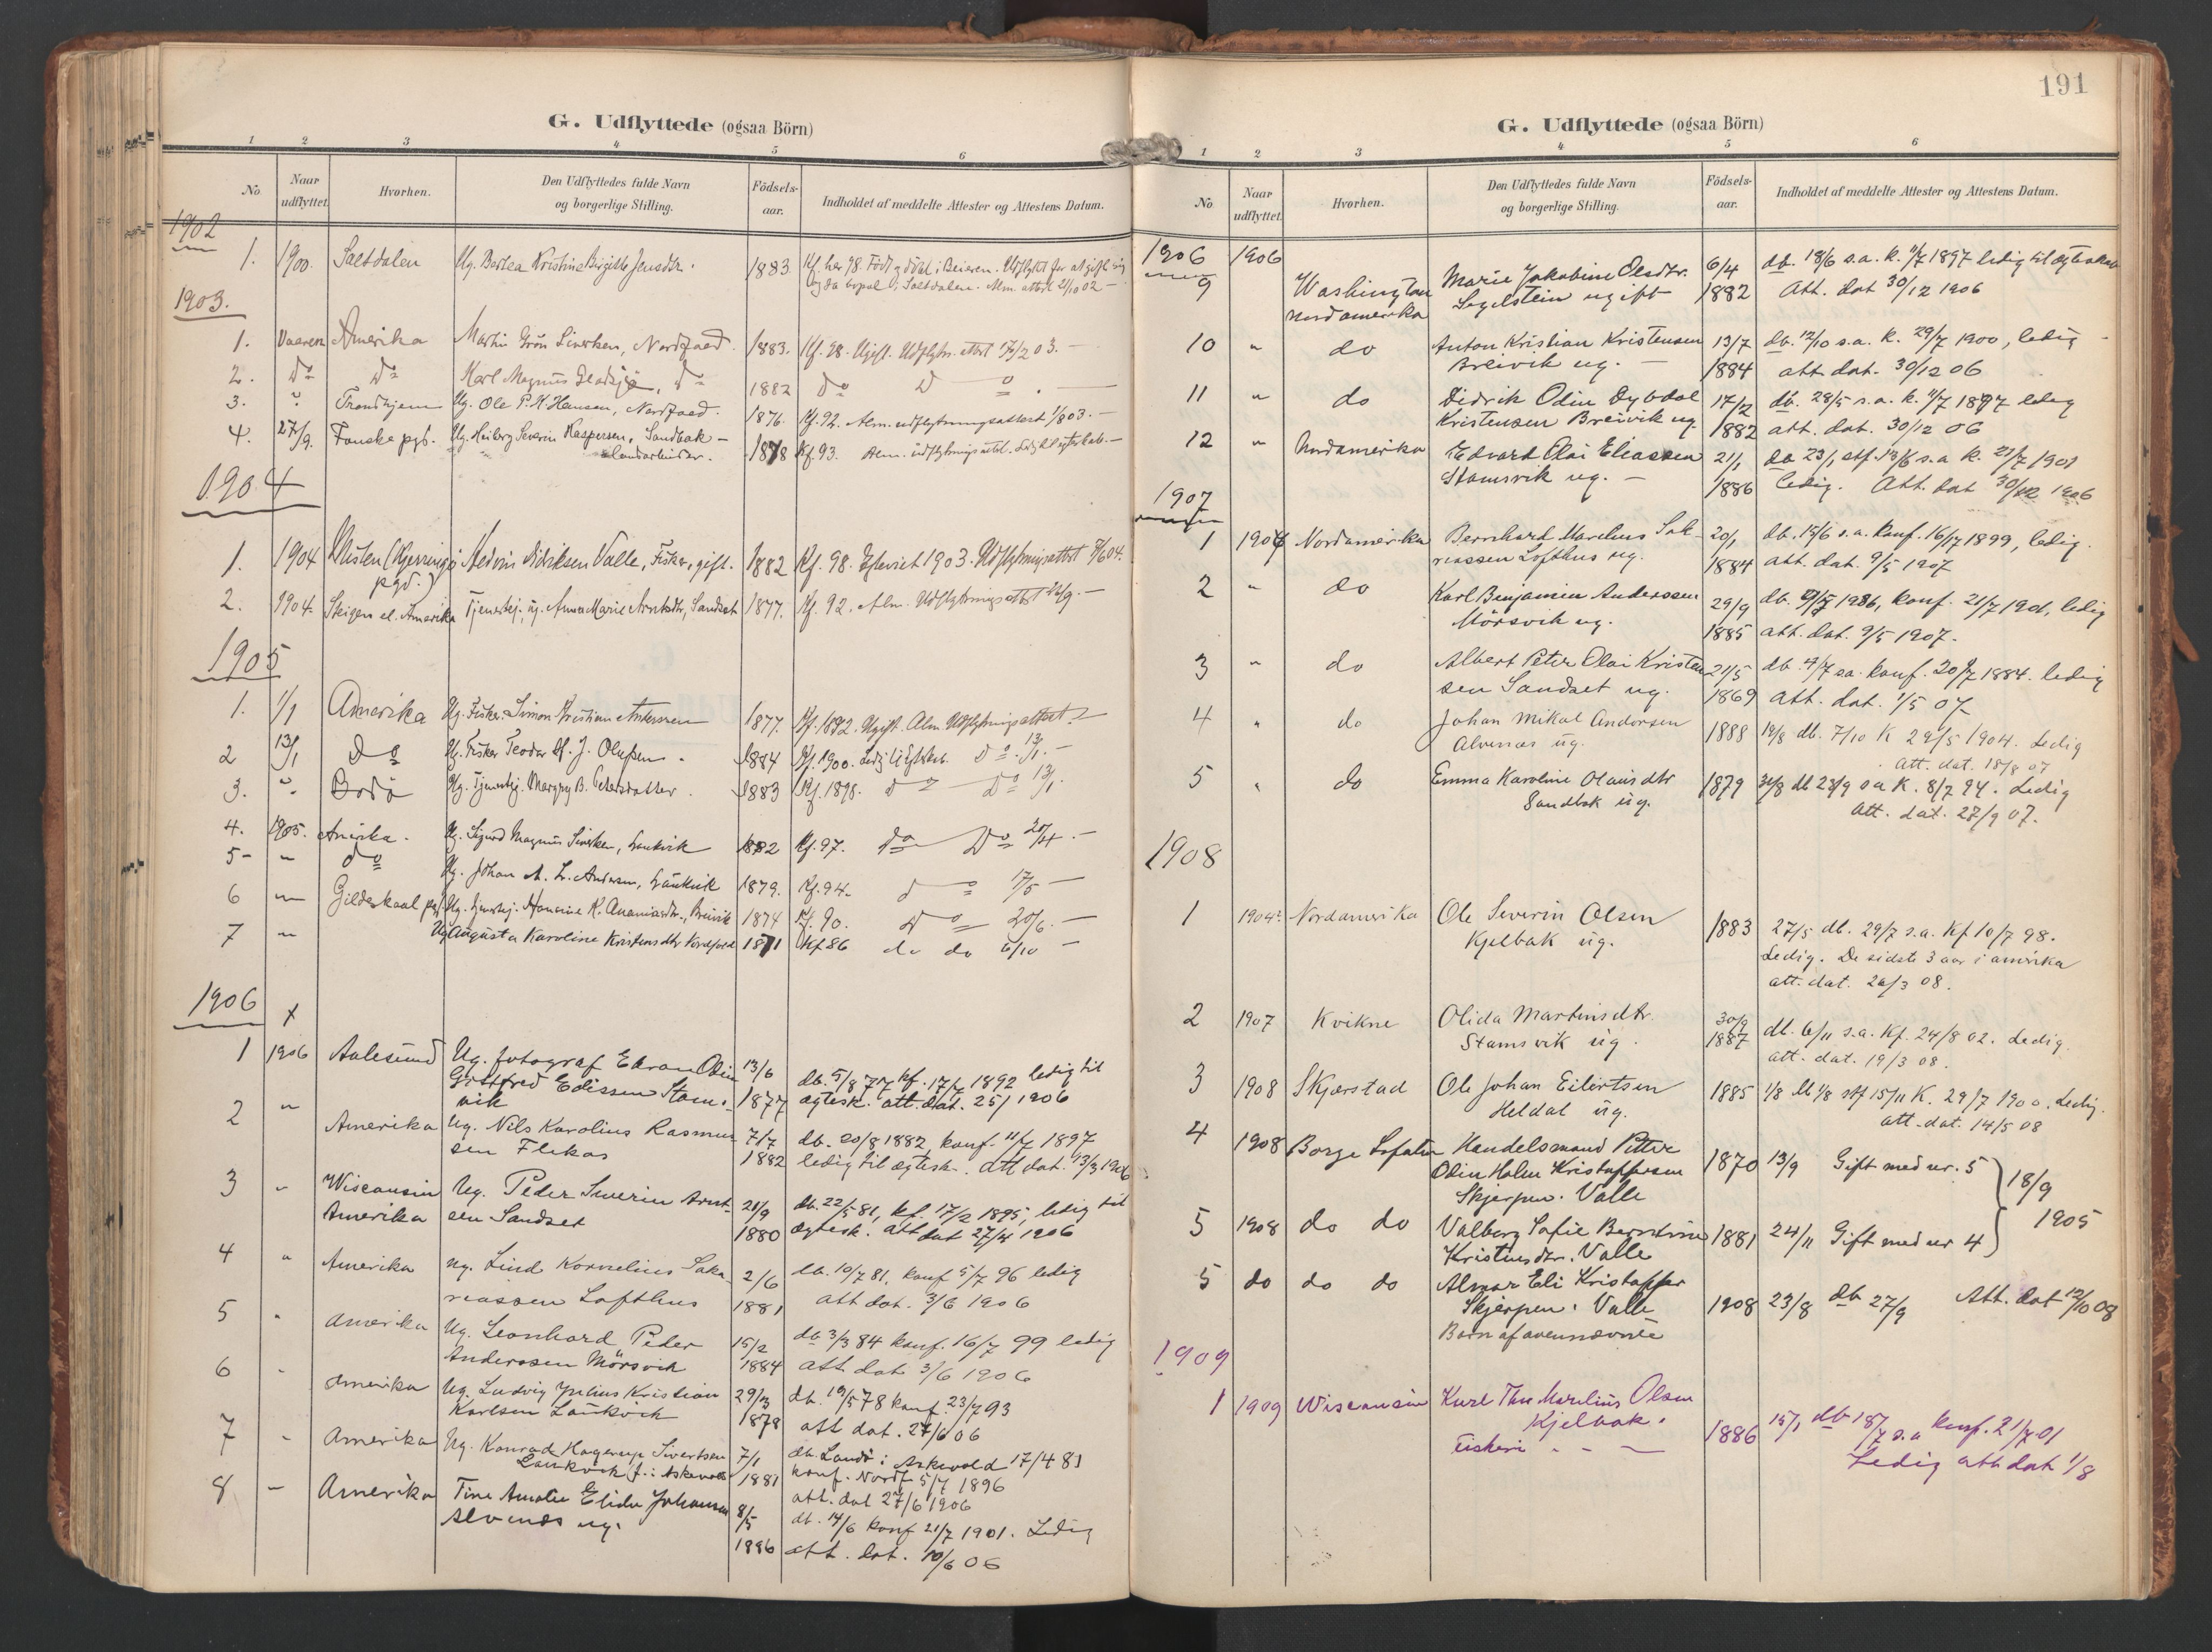 G. Udflyttede (ogsaa Börn)
1 2 3 4 5 6
No Naar udflyttet. Hvorhen. Den Udflyttedes fulde Navn og borgerlige Stilling. Födsels-aar. Indholdet af meddelte Attester og Attestens Datum.
1902
1. 1900. Saltdalen Ug. Berlea Kristine Birgitte Jensdtr. 1883 Kf. her 98. Födt og döbt i Beiaren. Udflyttet for at gifte sig
og da bopæl i Saltdalen. Alm. attest 2/10 02 –
1903.
1. Vaaren Amerika Martin Grön Sivertsen, Nordfold. 1883. Kf. 98. Ugift. Udflytn. attest 03. –
2. Do Do Karl Magnus, Do 1882 Do Do
3. " Trondhjem Ug. Ole P. H. Hansen, Nordfold. 1876. Kf. 92. Alm. udflytningsattest 1/8 03. –
4. 27/9. Fauske pgd. Ug. Heiberg Severin Kaspersen, Sandbak – 1878 Kf. 93. Alm. udflytningsattest. Ledig til ægteskab. –
Landarbeider.
1904
1. 1904 (Kjerringö Aedvin Didriksen Valle, Fisker, gift. 1882 Kf. 98. Egteviet 1903. Udflytningsattest 04.
pgd.)
2. 1904. Steigen el. Amerika Tjenestepj. ug. Anna Marie Arntsdtr, Sandset 1877. Kf. 92. Alm. Udflytningsattest /9. –
1905
1. 1/1 Amerika Ug. Fisker Simon Kristian Andersen 1877. Kf. 1892. Ugift. Alm. Udflytningsattest. –
2 13/1 Do Ug. Fisker Teodor J. Olufsen. 1884 Kf. 1900. Ledig til Egtesk. Do 13/1. –
3. " Bodö Ug. Tjenestepj. Margrg B. Petersdatter. 1883 Kf. 1898. Do Do 13/1.
4. 1905. Amerika. Ug. Sigurd Magnus Sivertsen, Laukvik 1882 Kf. 97. Do Do 20/4. –
5 – " do Ug. Johan A. L. Andersen, Laukvik 1879. Kf. 94. do 17/5 –
6 " Gildeskaal pgd. Ug. tjenestepj. Hansine K. Ananiasdtr., Breivik 1874 Kf. 90. Do 20/6. –
7 " Ug Augusta Karoline Kristensdtr Nordfold 1871 Kf 86 do do 6/10 –
1906
1 1906 Aalesund Ug. fotograf Edvan Odin 13/6 db. 5/8 77 kf. 17/7 1892 ledig til
Gottfred Edissen Stams- 1877 ægtesk. att. dat. 25/ 1906
vik
2 " Amerika Ug. Nils Karolius Rasmus- 7/7 db. 20/8 1882, konf. 11/7 1897
sen Flekas 1882 ledig til ægtesk. att dat. 13/3 1906
3 " Wisconsin Ug. Peder Severin Arnt- 21/9 db. 22/5 81, kf. 17/2 1895, ledig til
Amerika sen Sandset 1880 ægtesk. att dat 27/4 1906
4 " Amerika ug. Lind Kornelius Saka- 2/6 db. 10/7 81, konf 5/7 96 ledig
reassen Lofthus 1881 att dat. 3/6 1906
5 " Amerika Ug. Leonhard Peder 15/2 db 3/3 84 konf. 16/7 99 ledig
Anderssen Mörsvik 1884 att dat 3/6 1906
6 " Amerika Ug. Ludvig Julius Kristian 29/3 db. 19/5 78 konf. 23/7 93
Karlsen Laukvik 1878 att dat. 27/6 06
7 " Amerika Ug. Konrad Hagerup Sivertsen 7/1 db. Landö i Askevold 17/4 81
Laukvik f. i Askevold 1881 konf. Nordf 5/7 1896
att. dat 27/6 1906
8 – Amerika Tine Amalie Elida Johansen 8/5 db. 14/6 konf 21/7 1901. Ledig
Alvenes ug. 1886 att. dat. 10/6 06
191
G. Udflyttede (ogsaa Börn)
1 2 3 4 5 6
No Naar udflyttet. Hvorhen. Den Udflyttedes fulde Navn og borgerlige Stilling. Födsels-aar. Indholdet af meddelte Attester og Attestens Datum.
1906 1906
9 Washington Marie Jakobine Olsdtr. 6/4 db. 18/6 s.a. k. 11/7 1897 ledig til ægteskab
Nordamerika Segelstein ugift 1882 Att. dat 30/12 1906
10 " do Anton Kristian Kristensen 13/7 db. 12/10 s.a. k. 29/7 1900, ledig –
Breivik ug. – 1884 att dat. 30/12 06
11 " do Didrik Odin Dybdal 17/2 db. 28/5 s.a. k. 11/7 1897 ledig
Kristensen Breivik ug. 1882 att. dat. 30/12 06
12 " Nordamerika Edvard Olai Eliassen 21/1 db 23/1 stf. 13/6 s.a k. 21/7 1901
Stamsvik ug. – 1886 ledig. Att. dat 30/12 1906
1907
1 1906 Nordamerika Bernhard Marelius Sak- 20/1 db. 15/6 s.a. konf. 16/7 1899, ledig.
riassen Lofthus ug. 1884 att. dat. 9/5 1907
2 " do Karl Benjamin Anderssen 29/9 db. 1886, konf. 21/7 1901, ledig
Mörsvik ug. 1885 att. dat. 9/5 1907.
3 " do Albert Peter Olai Kristen- 21/5 db. 4/7 sa. konf. 20/7 1884. ledig
sen Sandset ug. 1869 att. dat. 1/5 07
4 " do Johan Mikal Andorsen 1888 19/8 db. 7/10 K 29/5 1904. Ledig
Alvenæs ug. Att. dat. 18/8 07
5 " do Emma Karoline Olausdtr 1879 31/8 db 28/9 sa K. 8/7 94. Ledig
Sandbak ug. Att. dat. 27/9 07.
1908
1 1904? Nordamerika Ole Severin Olsen 1883 27/5 db. 29/7 s.a. Kf 10/7 98.
Kjelbak ug. Ledig. De sidste 3 aar i amerika
att. dat. 26/3 08.
2 1907 Kvikne Olida Martinsdtr. 30/9 db. 6/11 s.a. Kf. 24/8 02. Ledig.
Stamsvik ug. 1887 att. dat. 19/3 08.
3 1908 Skjerstad Ole Johan Eilertsen 1885 1/8 db 1/8 stf 15/11 K. 29/7 1900. Ledig.
Heldal ug. att. dat. 14/5 08
4 1908 Borge Lofoten Handelsmand Petter 1870 13/9 Gift med nr. 5 } 18/9
Odin Holm Kristoffersen
Skjerpen. Valle
5 1908 do do Valborg Sofie Berntine 1881 24/11 Gift med nr 4 } 1905
Kristensdtr. Valle
5 do do do Almar Eli Kristoffer
Skjerpen. Valle 1908 23/8 db 27/9 Att. dat 12/10 08
Barn af ovennævnte
1909
1 1909 Wisconsin Karl Marelius Olsen
Kjelbak. 1886 15/1 db 18/7 s.a konf. 21/7 01
Fiskeri " – – Ledig att dat 1/8